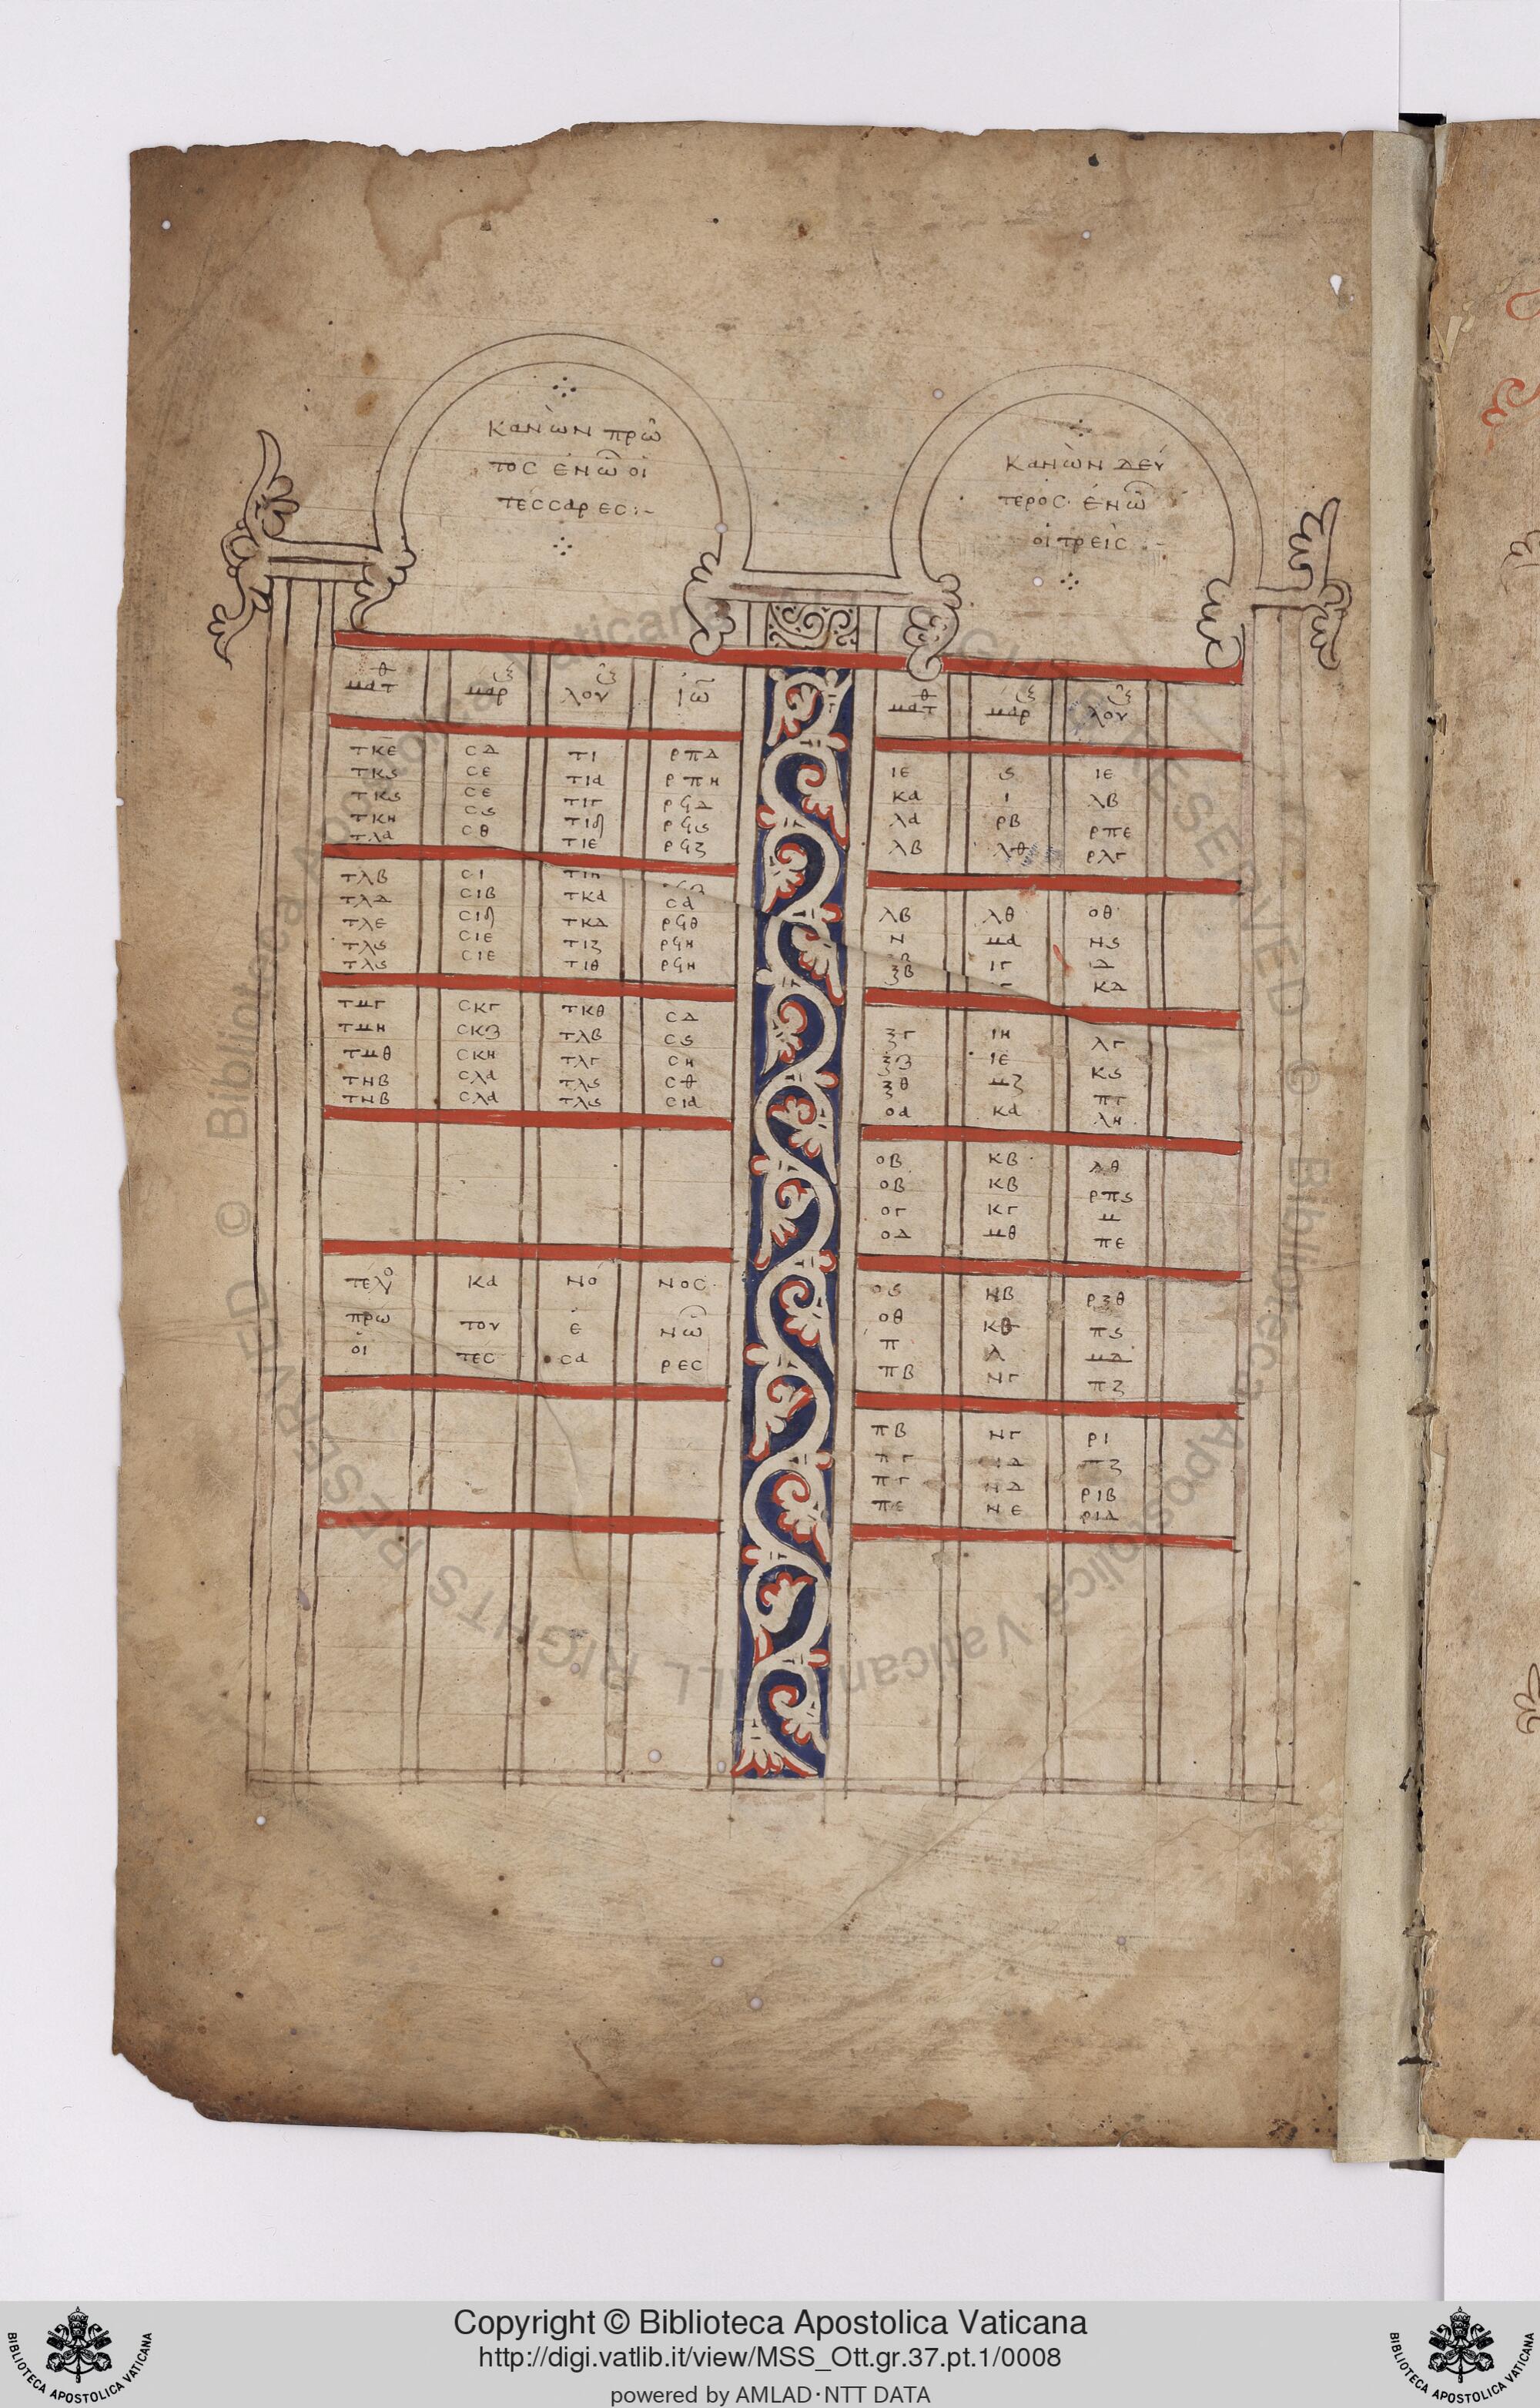 κανὼν πρῶ
τος ἐν ὧ οἱ
τέσσαρες:-
κανὼν δεύ
τερος· ἐν ὧ
οἱ τρεῖς :-
ματθ μαρ λου ιω
τκε σδ τι ρπδ
τκς σε τια ρπη
τκς σε τιγ ρϟδ
τκη σς τιδ ρϟς
τλα σθ τιε ρϟζ
τλβ σι τιη
τλδ σιβ τκα σα
τλε σιδ τκδ ρϟθ
τλς σιε τιζ ρϟη
τλς σιε τιθ ρϟη
τμγ σκγ τκθ σδ
τμη σκζ τλβ σς
τμθ σκη τλγ ση
τνβ σλα τλς σθ
τνβ σλα τλς σια
τελο κα νο νος
πρω του ἐ νὧ
οἱ τες σα ρες
ματθ μαρ λου
ιε ς ιε
κα ι λβ
λα ρβ ρπε
λβ λθ ρλγ
λβ λθ οθ
ν μα νς
ξβ ιγ δ
κδ
ξγ ιη λγ
ξζ ιε κς
ξθ μζ πγ
οα κα λη
οβ κβ λθ
οβ κβ ρπς
ογ κγ μ
οδ μθ πε
ος νβ ρξθ
οθ κθ πς
π λ μδ
πβ νγ πζ
πβ νγ ρι
πγ νδ πζ
πγ νδ ριβ
πε νε ριδ
Copyright © Biblioteca Apostolica Vaticana
http://digi.vatlib.it/view/MSS_Ott.gr.37.pt.1/0008
powered by AMLAD·NTT DATA
BIBLIOTECA APOSTOLICA VATICANA
BIBLIOTECA APOSTOLICA VATICANA